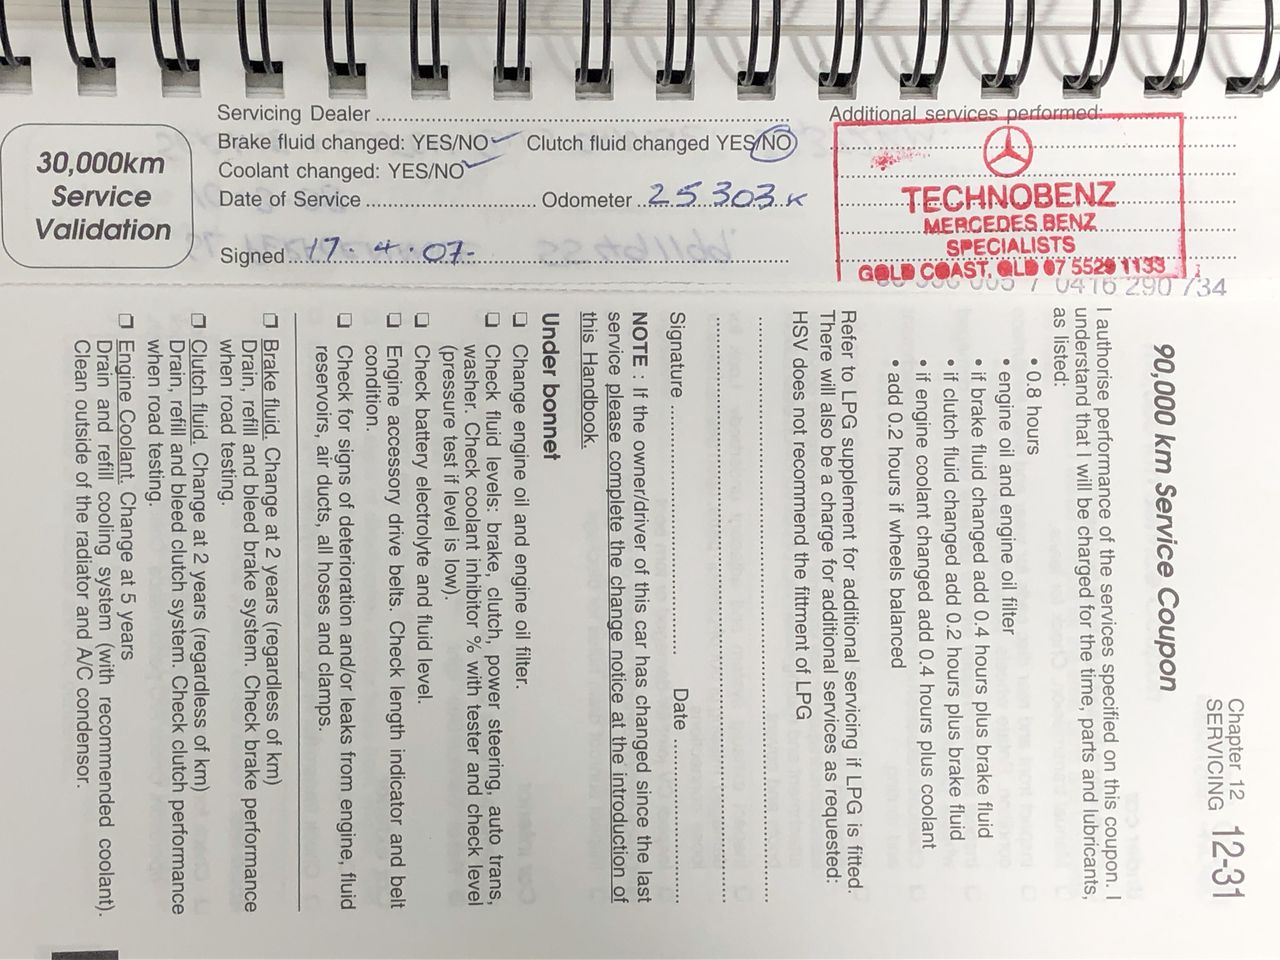 Servicing Dealer
Brake fluid changed: YES/NO Clutch fluid changed YES/NO
Coolant changed: YES/NO
Date of Service Odometer 25303 K
Signed 17.4.07-
30,000km
Service
Validation
Additional services performed:
TECHNOBENZ
MERCEDES BENZ
SPECIALISTS
GOLD COAST, QLD 07 5529 1133
0416 290 734
Chapter 12
SERVICING 12-31
90,000 km Service Coupon
I authorise performance of the services specified on this coupon. I
understand that I will be charged for the time, parts and lubricants,
as listed:
• 0.8 hours
• engine oil and engine oil filter
• if brake fluid changed add 0.4 hours plus brake fluid
• if clutch fluid changed add 0.2 hours plus brake fluid
• if engine coolant changed add 0.4 hours plus coolant
• add 0.2 hours if wheels balanced
Refer to LPG supplement for additional servicing if LPG is fitted.
There will also be a charge for additional services as requested:
HSV does not recommend the fittment of LPG
Signature Date
NOTE : If the owner/driver of this car has changed since the last
service please complete the change notice at the introduction of
this Handbook.
Under bonnet
❏ Change engine oil and engine oil filter.
❏ Check fluid levels: brake, clutch, power steering, auto trans,
washer. Check coolant inhibitor % with tester and check level
(pressure test if level is low).
❏ Check battery electrolyte and fluid level.
❏ Engine accessory drive belts. Check length indicator and belt
condition.
❏ Check for signs of deterioration and/or leaks from engine, fluid
reservoirs, air ducts, all hoses and clamps.
❏ Brake fluid. Change at 2 years (regardless of km)
Drain, refill and bleed brake system. Check brake performance
when road testing.
❏ Clutch fluid. Change at 2 years (regardless of km)
Drain, refill and bleed clutch system. Check clutch performance
when road testing.
❏ Engine Coolant. Change at 5 years
Drain and refill cooling system (with recommended coolant).
Clean outside of the radiator and A/C condensor.